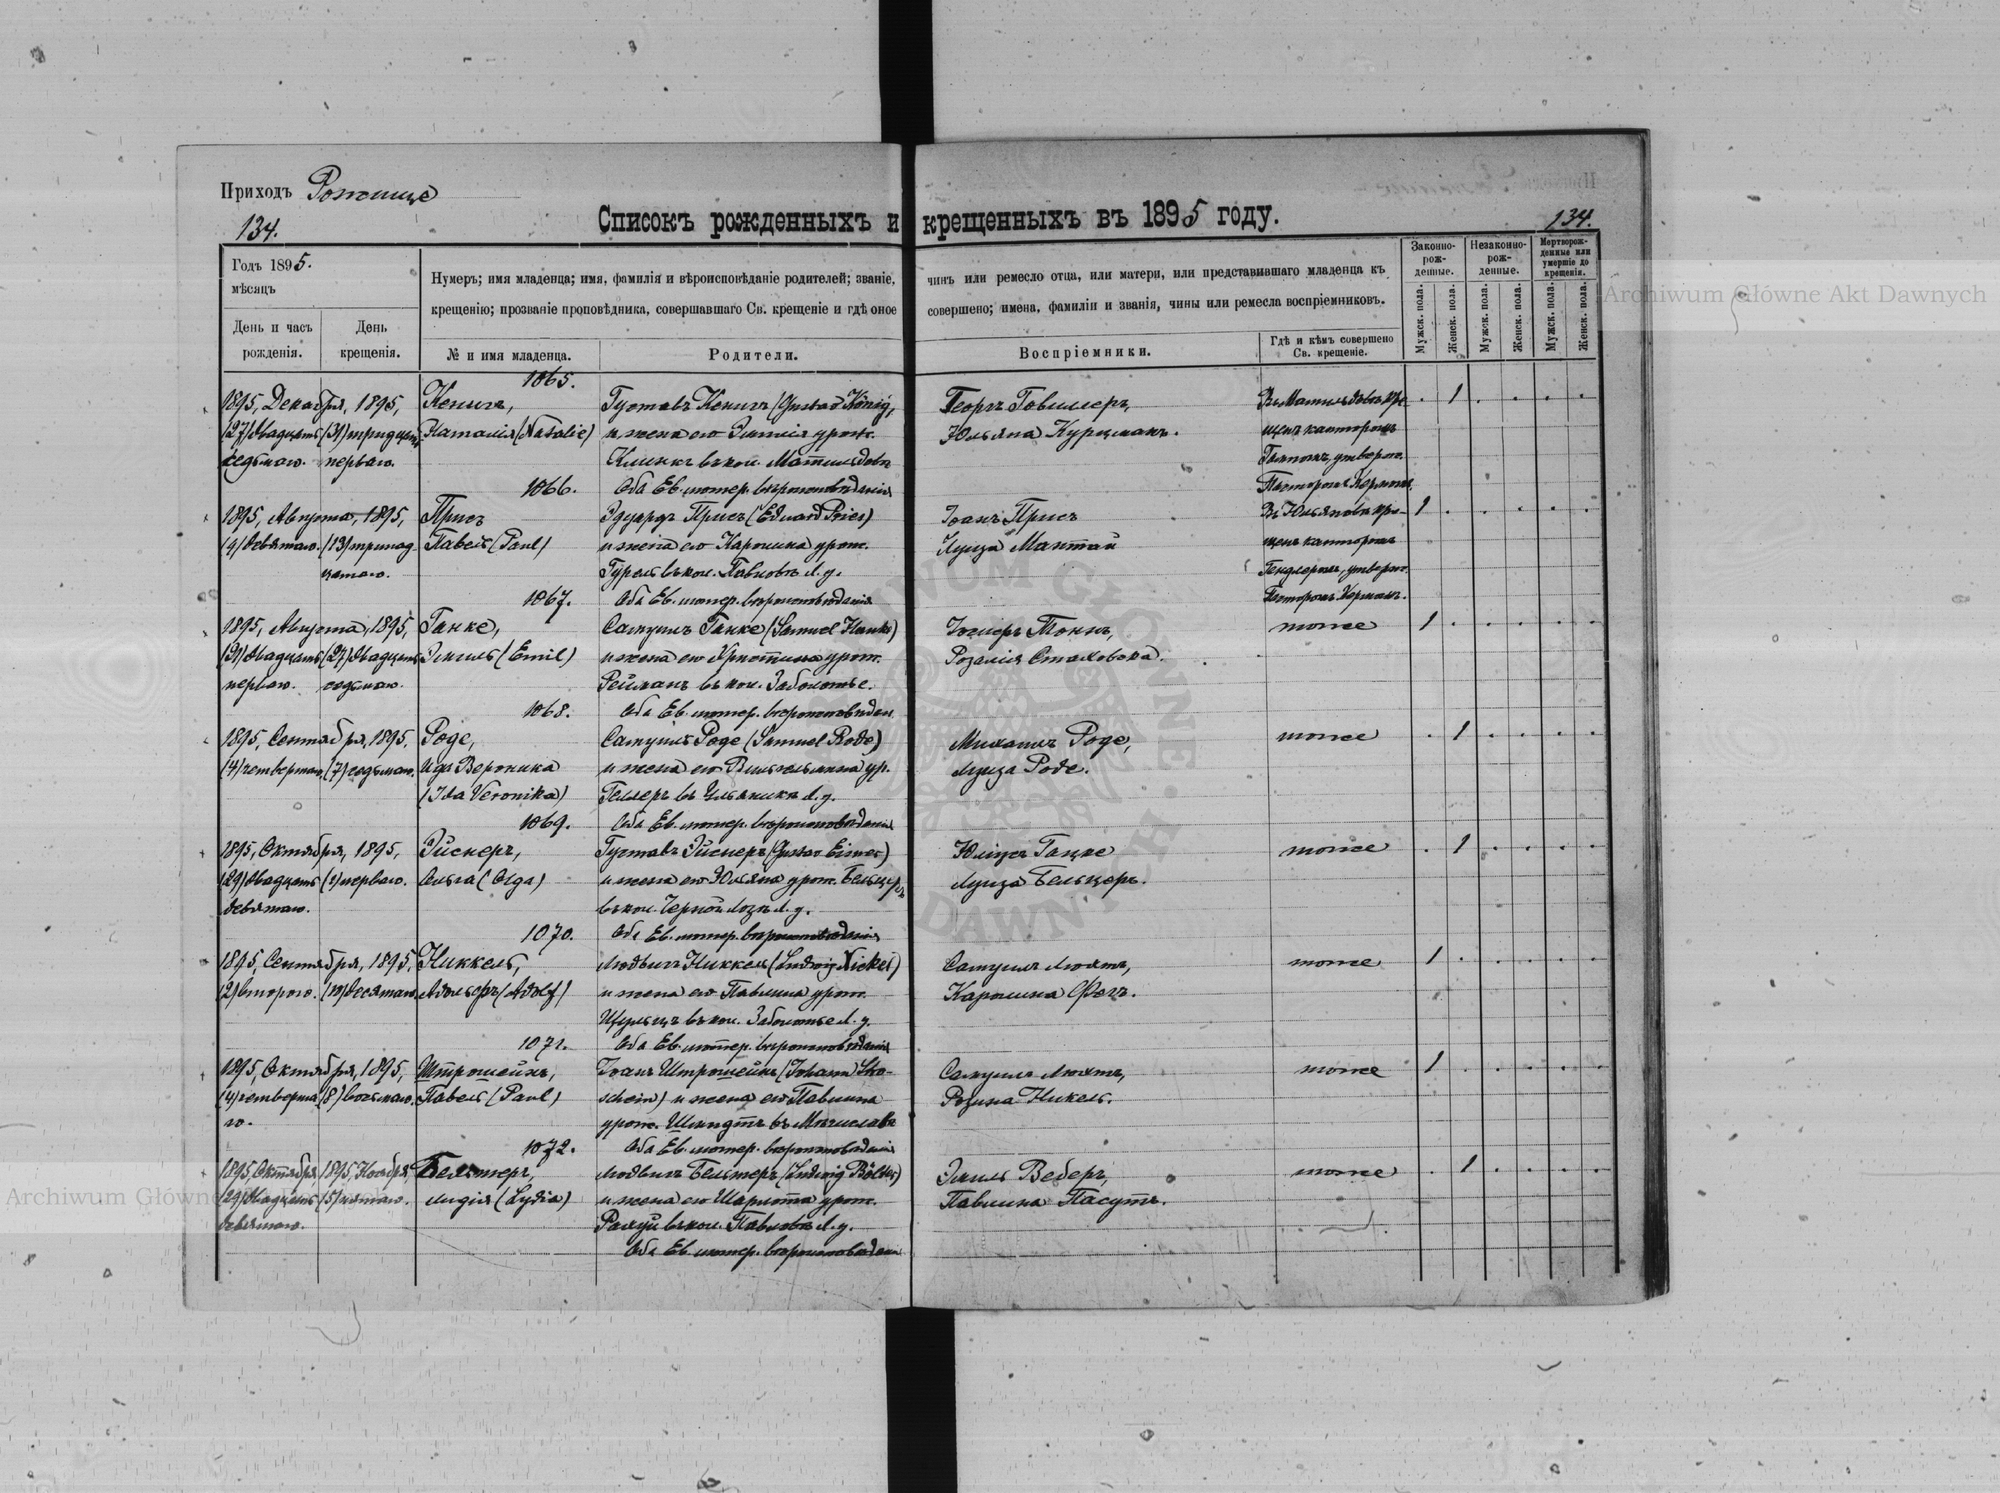 Приходъ Рожище
134.
134.
Списокъ рожденныхъ и крещенныхъ въ 1895 году.
Годъ 1895.
мѣсяцъ
День и часъ
рожденія.
День
крещенія.
Нумеръ; имя младенца; имя, фамилія и вѣроисповѣданіе родителей; званіе, чинъ или ремесло отца, или матери, или представившаго младенца къ
крещенію; прозваніе проповѣдника, совершавшаго Св. крещеніе и гдѣ оное совершено; имена, фамиліи и званія, чины или ремесла воспріемниковъ.
№ и имя младенца.
Родители.
Воспріемники.
Гдѣ и кѣмъ совершено
Св. крещеніе.
Законно-
рож-
денные.
Незаконно-
рож-
денные.
Мертворож-
денные или
умершіе до
крещенія.
Мужск. пола.
Женск. пола.
Мужск. пола.
Женск. пола.
Мужск. пола.
Женск. пола.
1065.
1895, Декабря, 1895,
(27) двадцать
седьмаго.
(31) тридцать
перваго.
Кенигъ,
Наталія (Natalie)
Густавъ Кенигъ (Gustav König,
и жена его Эмилія урож.
Клинкъ въ кол. Матильдовъ
Оба Ев. лютер. вѣроисповѣданія
Георгъ
Юльяна Курцманъ.
Въ Матильдовѣ кре-
щенъ канторомъ
утвержд.
Пасторомъ Керномъ.
1066.
1895, Августа, 1895,
(9) девятаго.
(13) тринад-
цатаго.
Присъ
Павелъ (Paul)
Эдуардъ Присъ (Eduard Pries)
и жена его Каролина урож.
въ кол. Павловъ Л. у.
Оба Ев. лютер. вѣроисповѣданія
Іоанъ Присъ
Луиза Мантай
Въ Юльяновѣ кре-
щенъ канторомъ
утвержд.
Пасторомъ Керномъ.
1067.
1895, Августа, 1895,
(21) двадцать
перваго.
(27) двадцать
седьмаго.
Ганке,
Эмиль (Emil)
Самуилъ Ганке (Samuel Hanke)
и жена его Христина урож.
Рейманъ въ кол. Заболотье.
Оба Ев. лютер. вѣроисповѣдан.
Розалія Стаховска.
тоже
1068.
1895, Сентября, 1895.
(4) четвертаго.
(7) седьмаго.
Роде,
Ида Вероника
(Ida Veronika)
Самуилъ Роде (Samuel Rode)
и жена его Вильгельмина ур.
Геллеръ въ Ульяникѣ Л. у.
Оба Ев. лютер. вѣроисповѣданія
Михаилъ Роде,
Луиза Роде.
тоже
1069.
1895, Октября, 1895,
(29) двадцать
девятаго.
(1) перваго.
Эйснеръ,
Ольга (Olga)
Густавъ Эйснеръ (Gustav Eisner)
и жена его Юльяна урож. Бельцеръ
въ кол. Черной Лозѣ Л. у.
Оба Ев. лютер. вѣроисповѣданія
Юліусъ Гацке
Луиза Бельцеръ.
тоже
1070.
1895, Сентября, 1895,
(2) втораго.
(10) десятаго.
Никкель,
Адольфъ (Adolf)
Людвигъ Никкель (Ludwig Nickel)
и жена его Павлина урож.
Шульцъ въ кол. Заболотье Л. у.
Оба Ев. лютер. вѣроисповѣданія
Самуилъ Люктъ,
Каролина Фогъ.
тоже
1071.
1895, Октября, 1895,
(4) четверта
го.
(8) восьмаго.
Штрошейнъ,
Павелъ (Paul)
Іоанъ Штрошейнъ (Johann Stro-
schein) и жена его Павлина
урож. Шмидтъ въ Мечиславѣ
Оба Ев. лютер. вѣроисповѣданія
Самуилъ Люктъ,
Розина Никель.
тоже
1072.
1895, Октября
1895, Ноября
(29) двадцать
девятаго.
(5) пятаго.
Бельтеръ,
Лидія (Lydia)
Людвигъ Бельтеръ (Ludwig
и жена его Шарлотта урож.
въ кол. Павловъ Л. у.
Оба Ев. лютер. вѣроисповѣдан
Эмиль Веберъ,
Павлина Пасутъ.
тоже
Archiwum Główne Akt Dawnych